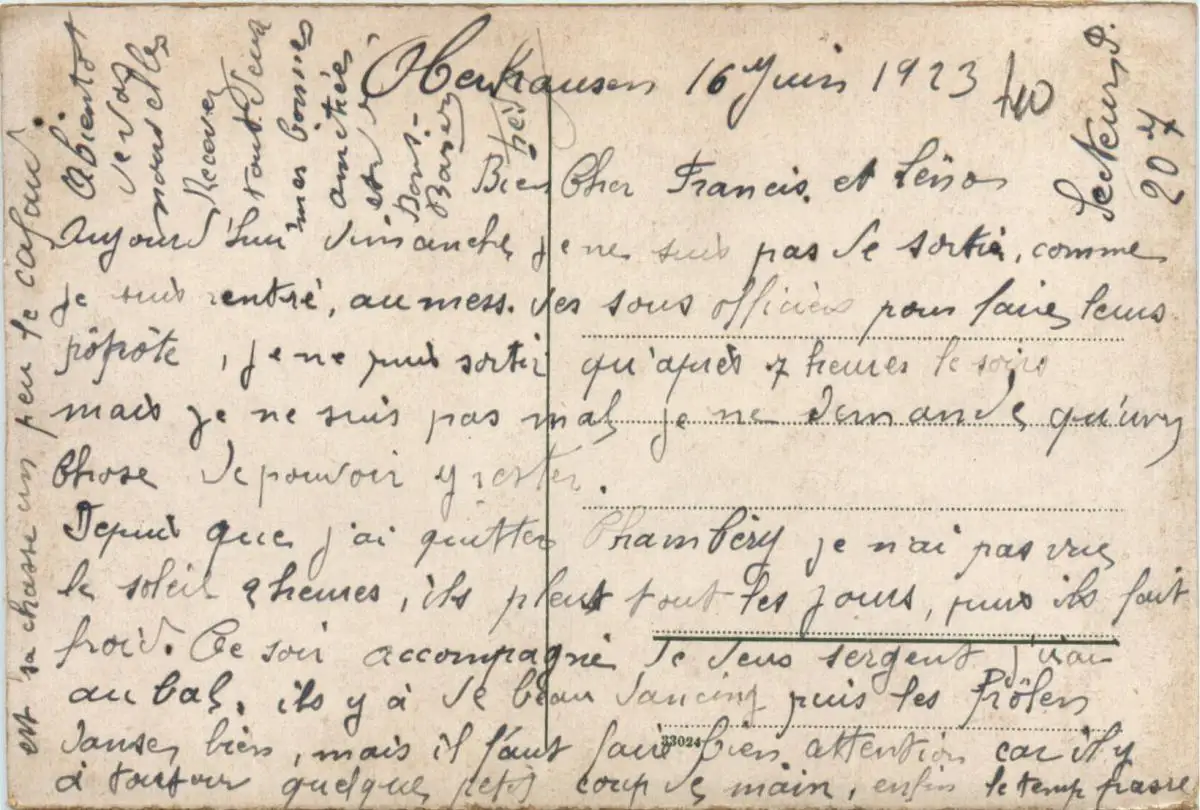 Oberhausen 16 Juin 1923
Secteur P.
207
Bien Cher Francis, et Léna
Aujourd'hui dimanche je ne suis pas de sortie, comme
je suis rentré, au mess. des sous officiers pour faire leurs
pôpôte, je ne puis sortir qu'après 7 heures le soirs
mais je ne suis pas mal je ne demande qu'une
Chose de pouvoir y rester.
Depuis que j'ai quitter Chambéry je n'ai pas vue
le soleil 2 heures, ils pleut tout les jours, puis ils fait
froid. Ce soir accompagné de deux sergent j'irai
au bal. ils y à de beau dancing puis les Frölen
danses bien, mais il faut faire bien attention car il y
à toujour quelque petit coup de main, enfin le temp passe
est sa chasse un peu le cafard.
Abientot
de vos
nouvelles
Recever
tout deux
mes bonnes
amitiés
et de
Bons-
Baisers
33024